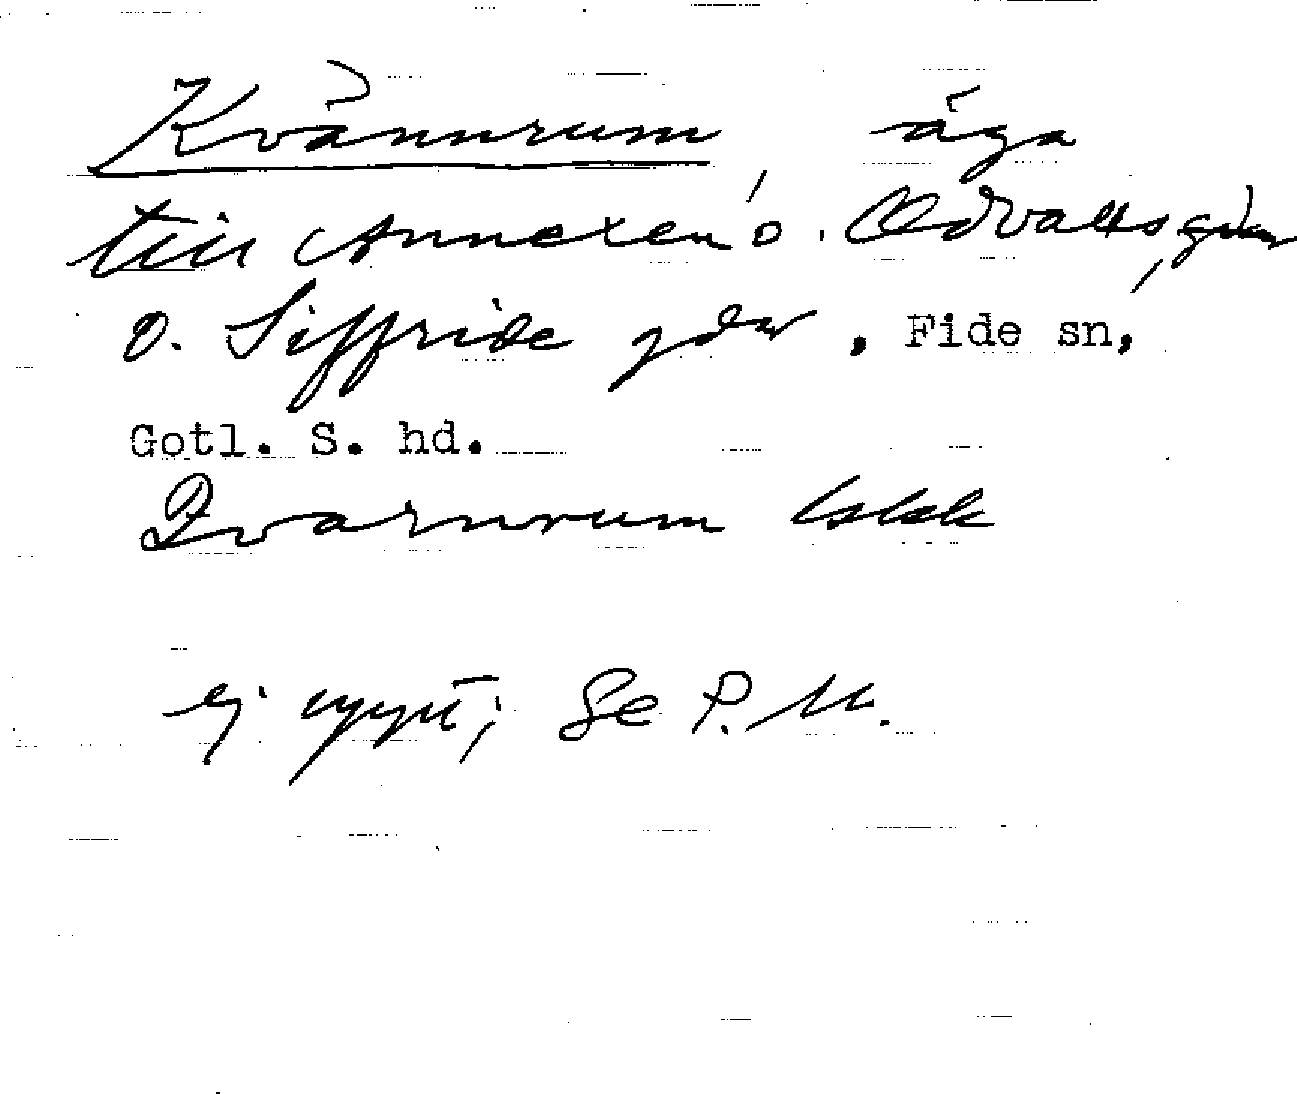 Kvännrum, äga
till Annexen o. Odvalls gdar,
o. Siffride gdar, Fide sn,
Gotl. S. hd.
Qvarnrum lskk
ej uppt; Se P. M.